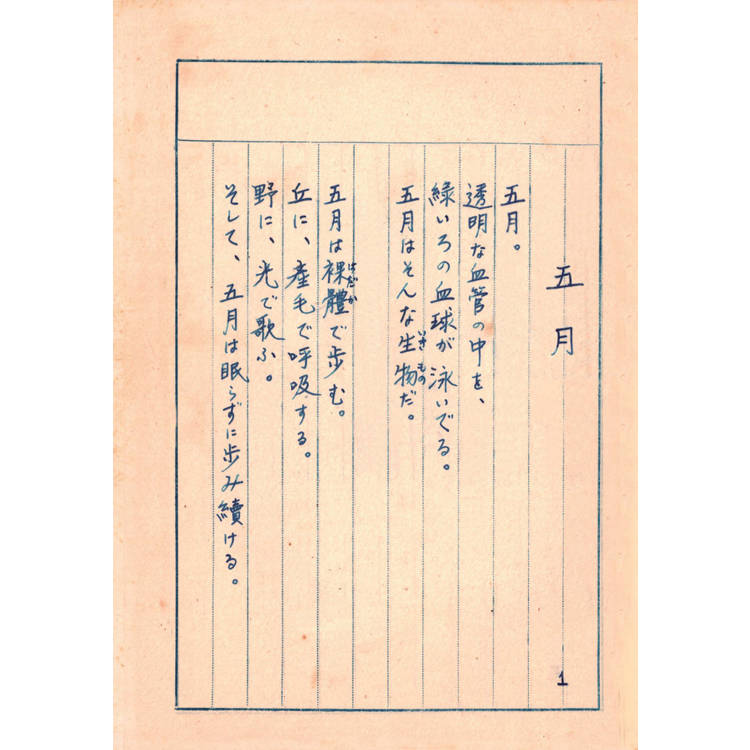 五月
五月。
透明な血管の中を、
緑いろの血球が泳いでる。
五月はそんな生物だ。
いきもの
五月は裸體で歩む。
はだか
丘に、産毛で呼吸する。
野に、光で歌ふ。
そして、五月は眠らずに歩み續ける。
1